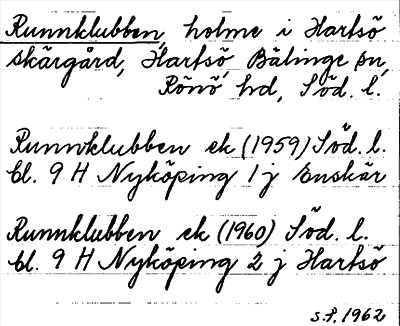 Runnklubben, holme i Hartsö
skärgård, Hartsö, Bälinge sn,
Rönö hd, Söd. l.
Runnklubben ek (1959) Söd. l.
bl. 9 H Nyköping 1 j Enskär
Runnklubben ek (1960) Söd. l.
bl. 9 H Nyköping 2 j Hartsö
s.f. 1962